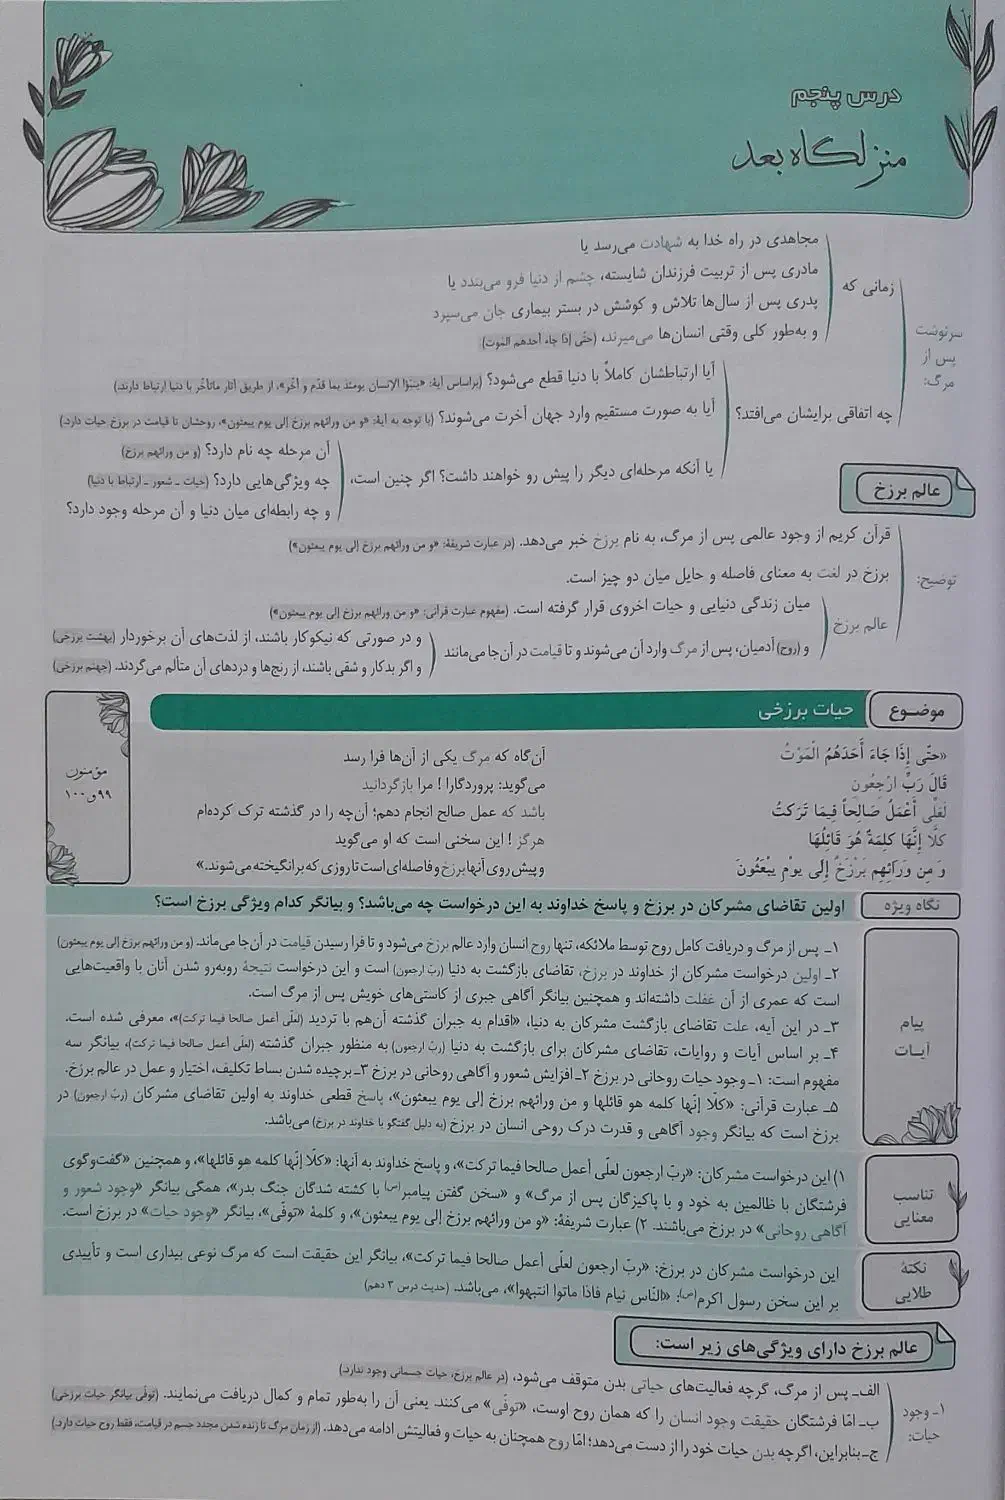 درس پنجم
منزلگاه بعد
سرنوشت پس از مرگ:
زمانی که
مجاهدی در راه خدا به شهادت می‌رسد یا
مادری پس از تربیت فرزندان شایسته، چشم از دنیا فرو می‌بندد یا
پدری پس از سال‌ها تلاش و کوشش در بستر بیماری جان می‌سپرد
و به‌طور کلی وقتی انسان‌ها می‌میرند، (حتّی إذا جاء أحدهم الموت)
چه اتفاقی برایشان می‌افتد؟
آیا ارتباطشان کاملاً با دنیا قطع می‌شود؟ (براساس آیهٔ: «ینبّؤا الإنسان یومئذ بما قدّم و أخّر»، از طریق آثار ماتأخّر با دنیا ارتباط دارند.)
آیا به صورت مستقیم وارد جهان آخرت می‌شوند؟ (با توجه به آیهٔ: «و من ورائهم برزخ إلی یوم یبعثون»، روحشان تا قیامت در برزخ حیات دارد.)
یا آنکه مرحله‌ای دیگر را پیش رو خواهند داشت؟ اگر چنین است،
آن مرحله چه نام دارد؟ (و من ورائهم برزخ)
چه ویژگی‌هایی دارد؟ (حیات ـ شعور ـ ارتباط با دنیا)
و چه رابطه‌ای میان دنیا و آن مرحله وجود دارد؟
عالم برزخ
توضیح:
قرآن کریم از وجود عالمی پس از مرگ، به نام برزخ خبر می‌دهد. (در عبارت شریفهٔ: «و من ورائهم برزخ إلی یوم یبعثون»)
برزخ در لغت به معنای فاصله و حایل میان دو چیز است.
عالم برزخ
میان زندگی دنیایی و حیات اخروی قرار گرفته است. (مفهوم عبارت قرآنی: «و من ورائهم برزخ إلی یوم یبعثون»)
و (روح) آدمیان، پس از مرگ وارد آن می‌شوند و تا قیامت در آن‌جا می‌مانند
و در صورتی که نیکوکار باشند، از لذت‌های آن برخوردار (بهشت برزخی)
و اگر بدکار و شقی باشند، از رنج‌ها و دردهای آن متألم می‌گردند. (جهنم برزخی)
موضـوع
حیات برزخی
مؤمنون
۹۹ و ۱۰۰
«حتّی إِذَا جَاءَ أَحَدَهُمُ الْمَوْتُ
آن‌گاه که مرگ یکی از آن‌ها فرا رسد
قَالَ رَبِّ ارْجِعُونِ
می‌گوید: پروردگارا! مرا بازگردانید
لَعَلِّی أَعْمَلُ صَالِحاً فِیمَا تَرَکتُ
باشد که عمل صالح انجام دهم؛ آن‌چه را در گذشته ترک کرده‌ام
کلَّا إِنَّهَا کلِمَةٌ هُوَ قَائِلُهَا
هرگز! این سخنی است که او می‌گوید
وَ مِن وَرَائِهِم بَرْزَخٌ إِلَی یوْمِ یبْعَثُونَ
و پیش روی آنها برزخ و فاصله‌ای است تا روزی که برانگیخته می‌شوند.»
نگاه ویژه
اولین تقاضای مشرکان در برزخ و پاسخ خداوند به این درخواست چه می‌باشد؟ و بیانگر کدام ویژگی برزخ است؟
پیام
آیـات
۱ـ پس از مرگ و دریافت کامل روح توسط ملائکه، تنها روح انسان وارد عالم برزخ می‌شود و تا فرا رسیدن قیامت در آن‌جا می‌ماند. (و من ورائهم برزخ إلی یوم یبعثون)
۲ـ اولین درخواست مشرکان از خداوند در برزخ، تقاضای بازگشت به دنیا (ربّ ارجعون) است و این درخواست نتیجهٔ روبه‌رو شدن آنان با واقعیت‌هایی
است که عمری از آن غفلت داشته‌اند و همچنین بیانگر آگاهی جبری از کاستی‌های خویش پس از مرگ است.
۳ـ در این آیه، علت تقاضای بازگشت مشرکان به دنیا، «اقدام به جبران گذشته آن‌هم با تردید (لعلّی أعمل صالحا فیما ترکت)»، معرفی شده است.
۴ـ بر اساس آیات و روایات، تقاضای مشرکان برای بازگشت به دنیا (ربّ ارجعون) به منظور جبران گذشته (لعلّی أعمل صالحا فیما ترکت)، بیانگر سه
مفهوم است: ۱ـ وجود حیات روحانی در برزخ ۲ـ افزایش شعور و آگاهی روحانی در برزخ ۳ـ برچیده شدن بساط تکلیف، اختیار و عمل در عالم برزخ.
۵ـ عبارت قرآنی: «کلّا إنّها کلمه هو قائلها و من ورائهم برزخ إلی یوم یبعثون»، پاسخ قطعی خداوند به اولین تقاضای مشرکان (ربّ ارجعون) در
برزخ است که بیانگر وجود آگاهی و قدرت درک روحی انسان در برزخ (به دلیل گفتگو با خداوند در برزخ) می‌باشد.
تناسب
معنایی
۱) این درخواست مشرکان: «ربّ ارجعون لعلّی أعمل صالحا فیما ترکت»، و پاسخ خداوند به آنها: «کلّا إنّها کلمه هو قائلها»، و همچنین «گفت‌وگوی
فرشتگان با ظالمین به خود و با پاکیزگان پس از مرگ» و «سخن گفتن پیامبر(ص) با کشته شدگان جنگ بدر»، همگی بیانگر «وجود شعور و
آگاهی روحانی» در برزخ می‌باشند. ۲) عبارت شریفهٔ: «و من ورائهم برزخ إلی یوم یبعثون»، و کلمهٔ «توفّی»، بیانگر «وجود حیات» در برزخ است.
نکتهٔ
طلایی
این درخواست مشرکان در برزخ: «ربّ ارجعون لعلّی أعمل صالحا فیما ترکت»، بیانگر این حقیقت است که مرگ نوعی بیداری است و تأییدی
بر این سخن رسول اکرم(ص): «النّاس نیام فاذا ماتوا انتبهوا»، می‌باشد. (حدیث درس ۳ دهم)
عالم برزخ دارای ویژگی‌های زیر است:
۱ـ وجود حیات:
الف‌ـ پس از مرگ، گرچه فعالیت‌های حیاتی بدن متوقف می‌شود، (در عالم برزخ، حیات جسمانی وجود ندارد.)
ب‌ـ امّا فرشتگان حقیقت وجود انسان را که همان روح اوست، «توفّی» می‌کنند. یعنی آن را به‌طور تمام و کمال دریافت می‌نمایند. (توفّی بیانگر حیات برزخی)
ج‌ـ بنابراین، اگرچه بدن حیات خود را از دست می‌دهد؛ امّا روح همچنان به حیات و فعالیتش ادامه می‌دهد. (از زمان مرگ تا زنده شدن مجدد جسم در قیامت، فقط روح حیات دارد.)